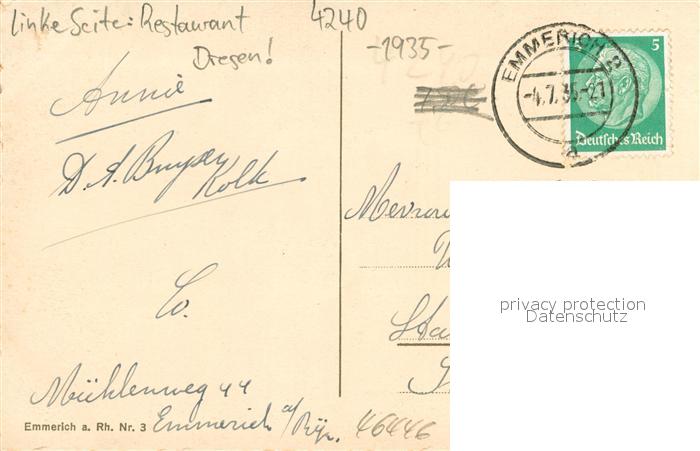 linke Seite: Restaurant
Dresen!
4240
-1935-
EMMERICH
-4.7.35.-21
5
Deutsches Reich
Annie
D. A. Bruyser
Kolk
Co.
Mevrou
Mühlenweg 44
Emmerich a/Rijn.
46446
Emmerich a. Rh. Nr. 3
privacy protection
Datenschutz